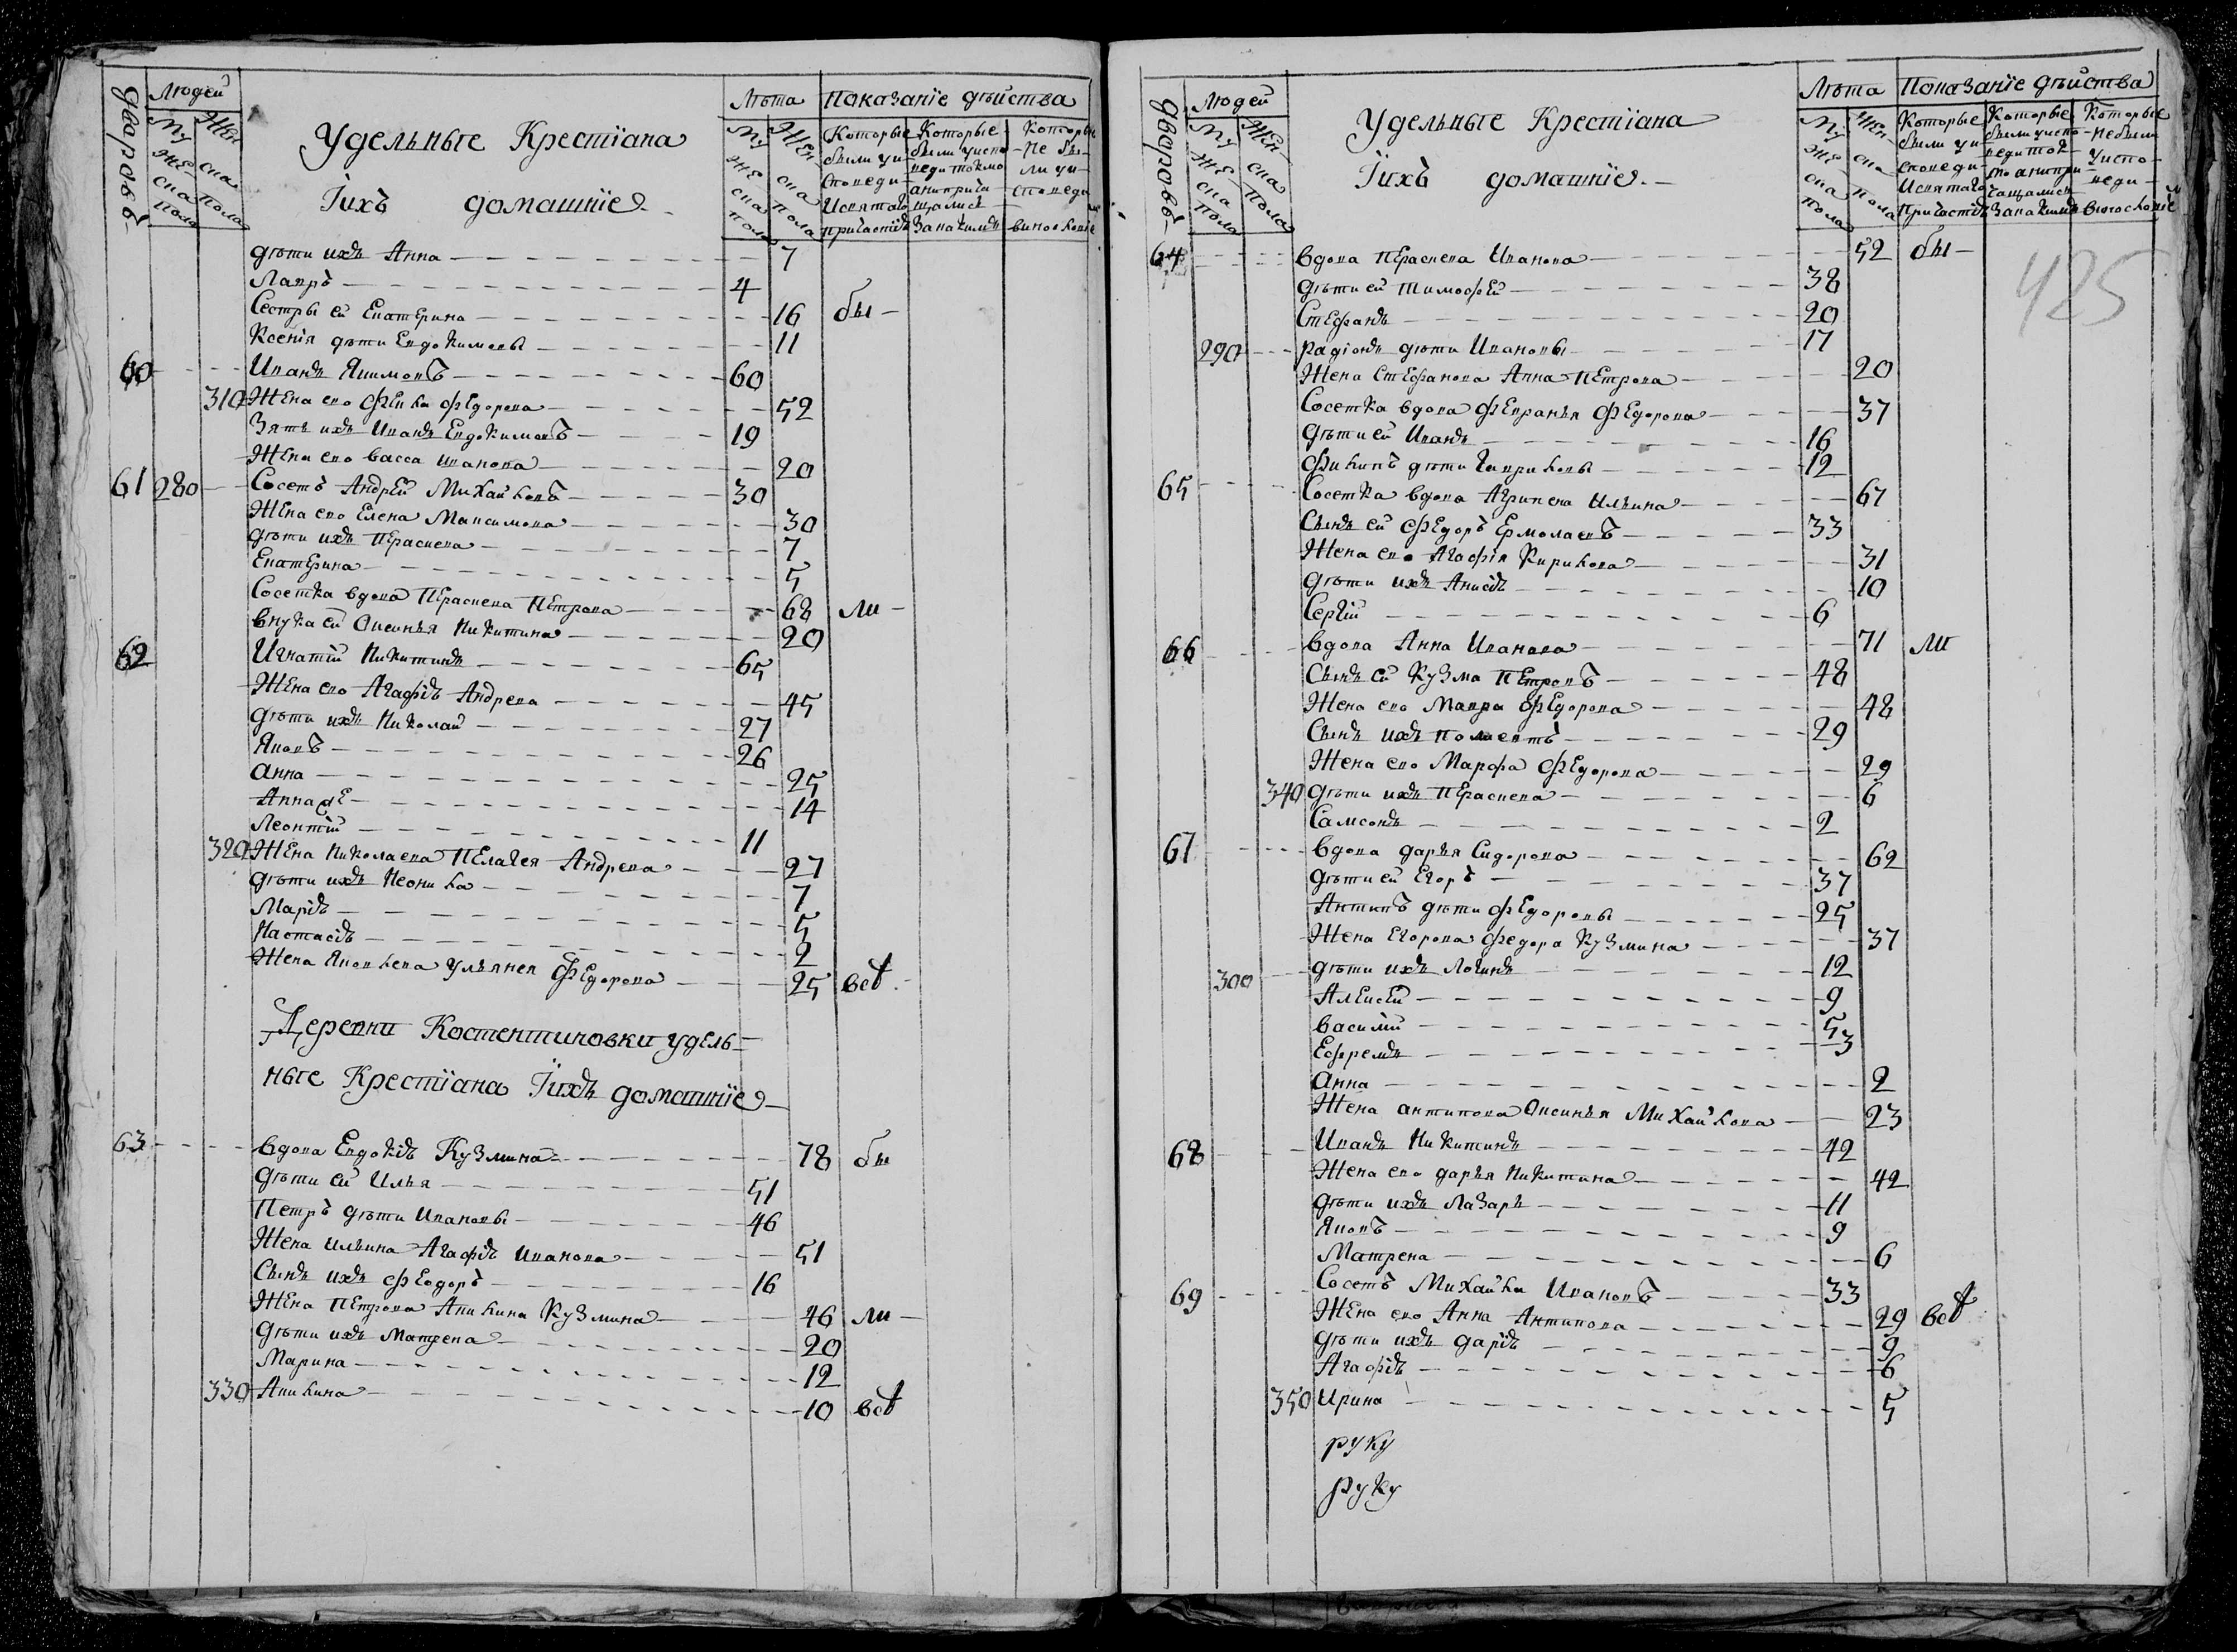 Дворовъ
Людей
Мужеска пола
Женска пола
Удельныте Крестіана
Іихъ домашніе
Лѣта
Показаніе дѣйства
Мужеска пола
Женска пола
Которые были уисповеди Исвятаго причастія
Которые были уиспо-
Которые не бы-
ли уи-
споведи
дѣти ихъ Анна 7
Лавръ 4
Сестры ей Екатерина 16 бы
Ксенія дѣти Евдокимовы 11
60 Иванъ Якимовъ 60
310 Жена его Фекла Федорова 52
Зять ихъ Иванъ Евдокимовъ 19
Жена его васса иванова 20
61 280 Сосетъ Андрей Михайловъ 30
Жена его Елена Максимова 30
дѣти ихъ Пераскева 7
Екатерина 5
Сосетка вдова Пераскева Петрова 68 ли
внука ей Оксинья Никитина 20
62 Игнатій Никитинъ 65
Жена его Агафія Андрева 45
дѣти ихъ Николай 27
Яковъ 26
анна 25
Анна же 14
Леонтій 11
320 Жена Николаева Пелагея Андрева 27
дѣти ихъ Неонила 7
Марія 5
Настасія 2
Жена Яковлева Ульянея Федорова 25 всѣ
Деревни Костентиновки удель-
ныте Крестіана Іихъ домашніе
63 вдова Евдокія Кузмина 78 бы
дѣти ей Илья 51
Петръ дѣти Ивановы 46
Жена ильина Агафія иванова 51
Сынъ ихъ Феодоръ 16
Жена Петрова Акилина Кузмина 46 ли
дѣти ихъ Матрена 20
Марина 12
330 Акилина 10 всѣ
Дворовъ
Людей
Мужеска пола
Женска пола
Удельныте Крестіана
Іихъ домашніе
Лѣта
Показаніе дѣйства
Мужеска пола
Женска пола
Которые были уисповеди Исвятаго Причастія
Которые были уиспо-
Которые небыли уиспо-
веди
425
64 вдова Пераскева Иванова 52 бы
дѣти ей Тимофей 38
Стефанъ 20
290 радіонъ дѣти Ивановы 17
Жена Стефанова Анна Петрова 20
Сосетка вдова Февранья Федорова 37
дѣти ей Иванъ 16
Филипъ дѣти Гавриловы 12
65 Сосетка вдова Агрипена Ильина 67
Сынъ ей Федоръ Ермолаевъ 33
Жена его Агафія Кирилова 31
дѣти ихъ Анисія 10
Сергій 6
66 вдова Анна Иванова 71 ли
Сынъ ей Кузма Петровъ 48
Жена его Мавра Федорова 48
Сынъ ихъ полиектъ 29
Жена его Марфа Федорова 29
340 дѣти ихъ Пераскева 6
Самсонъ 2
67 вдова дарья Сидорова 62
дѣти ей Егоръ 37
Антипъ дѣти Федоровы 25
Жена Егорова федора Кузмина 37
300 дѣти ихъ Логинъ 12
Алексей 9
василій 5
Ефремъ 3
анна 2
Жена антипова Оксинья Михайлова 23
68 Иванъ Никитинъ 42
Жена его дарья Никитина 42
дѣти ихъ Лазарь 11
Яковъ 9
Матрена 6
69 Сосетъ Михайла Ивановъ 33
Жена его Анна Антипова 29 всѣ
дѣти ихъ дарія 9
Агафія 6
350 Ирина 5
руку
руку